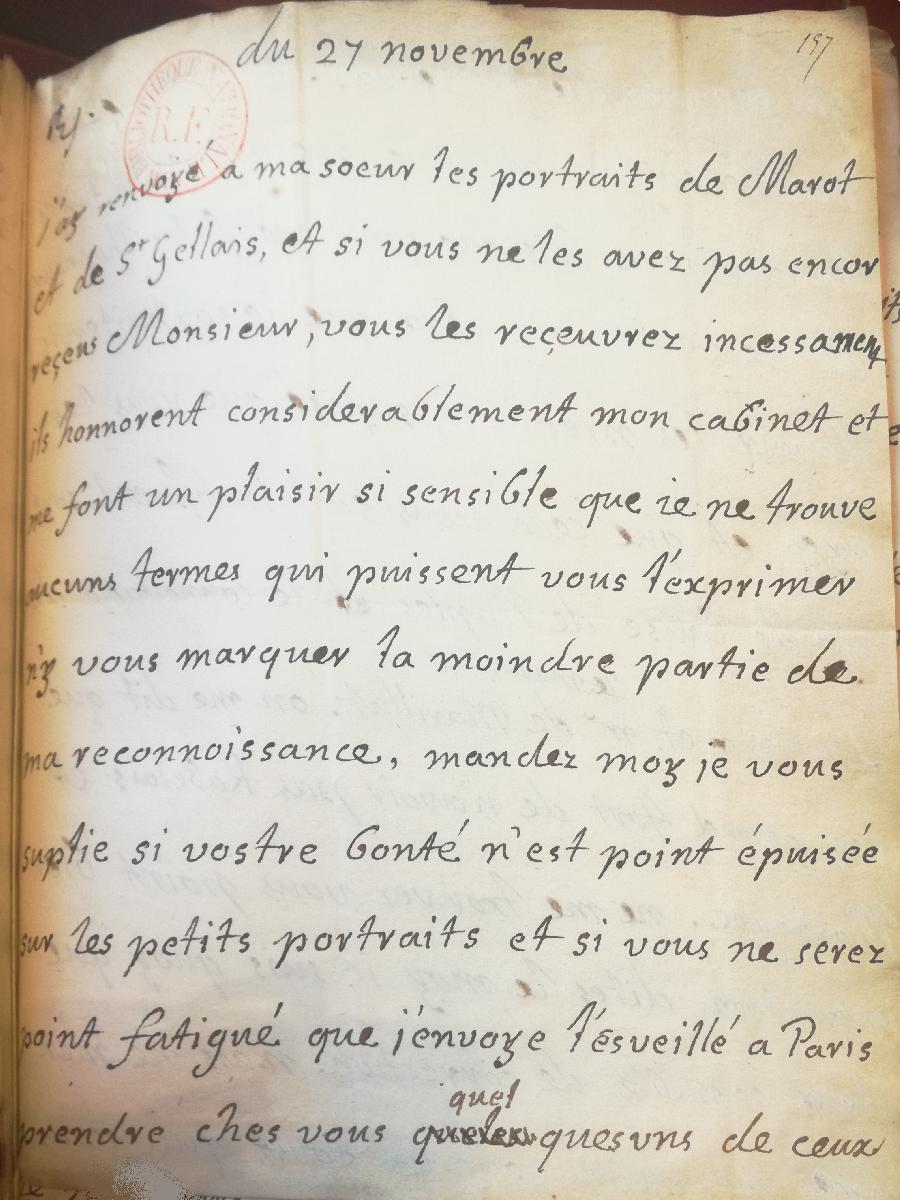 du 27 novembre
197
Rf.
BIBLIOTHEQUE NATIONALE
R.F.
j'ay renvoyé a ma soeur les portraits de Marot
et de St Gellais, et si vous ne les avez pas encor
reçeus Monsieur, vous les reçeuvrez incessament
ils honnorent considerablement mon cabinet et
me font un plaisir si sensible que ie ne trouve
aucuns termes qui puissent vous l'exprimer
n'y vous marquer la moindre partie de
ma reconnoissance, mandez moy je vous
suplie si vostre bonté n'est point épuisée
sur les petits portraits et si vous ne serez
point fatigué que j'envoye l'ésveillé a Paris
quel
prendre ches vous quesuns de ceux